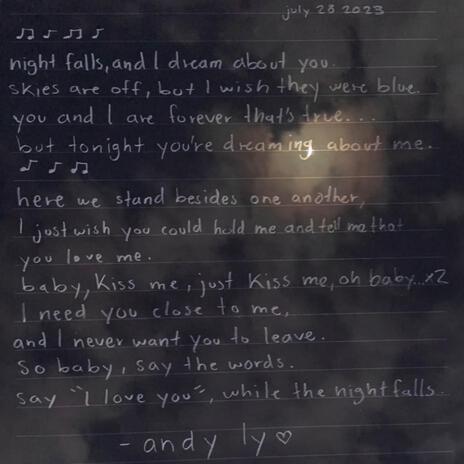 july 28 2023
♫ ♪ ♫ ♪
night falls, and I dream about you.
skies are off, but I wish they were blue.
you and I are forever that's true...
but tonight you're dreaming about me.
♪ ♪ ♫
here we stand besides one another,
I just wish you could hold me and tell me that
you love me.
baby, kiss me, just kiss me, oh baby...x2
I need you close to me,
and I never want you to leave.
So baby, say the words.
say "I love you", while the night falls.
- andy ly ♡